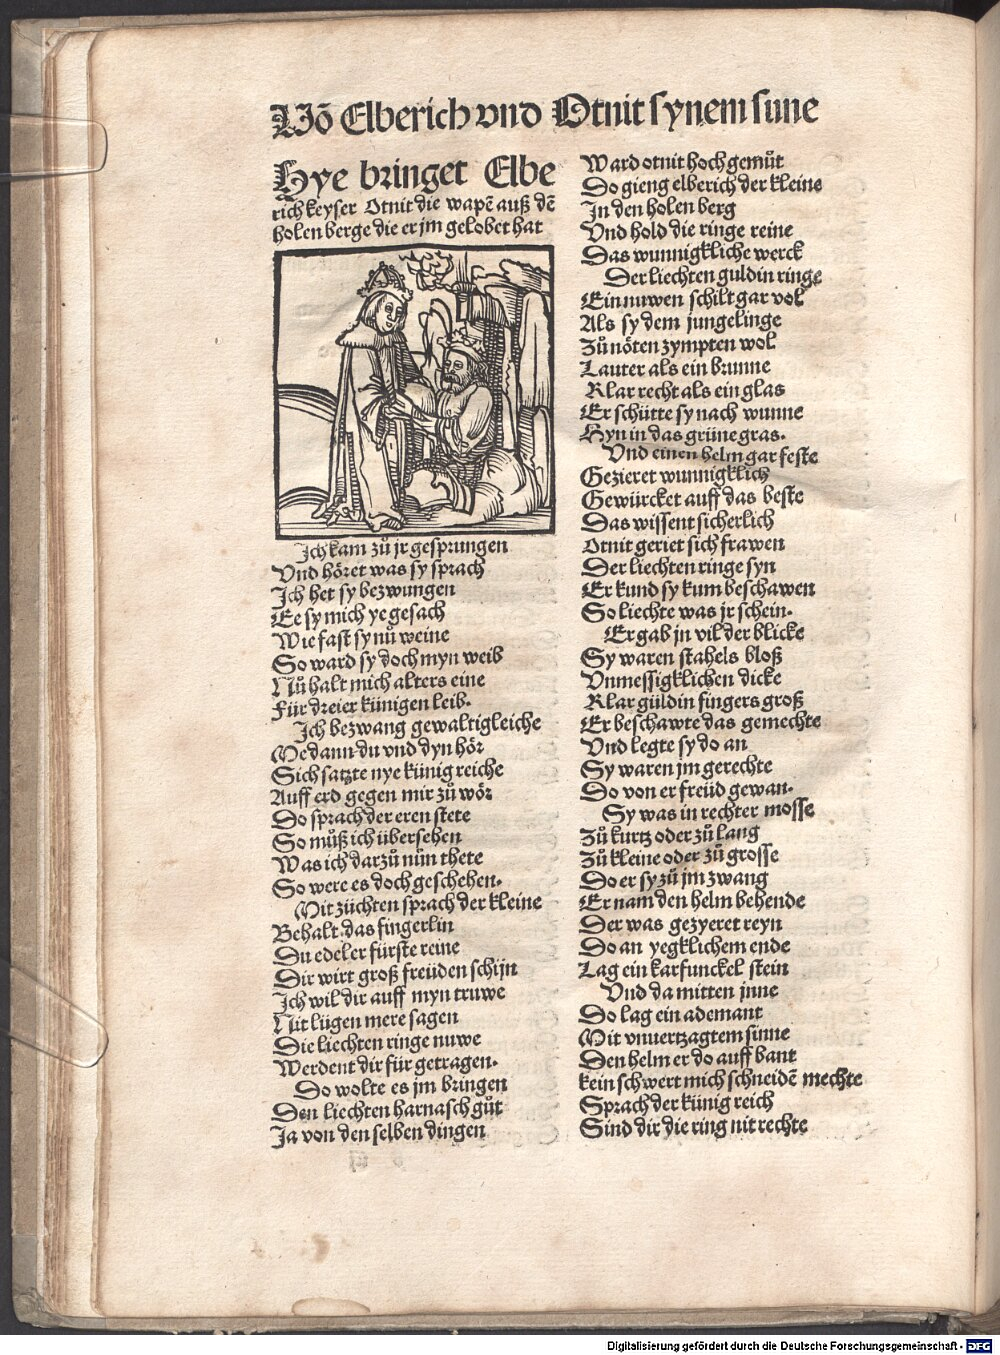 Võ Elberich vnd Otnit synem sune
Hye bringet Elbe
rich keyser Otnit die wapē auß dē
holen berge die er jm gelobet hat
Ich kam zů jr gesprungen
Vnd höret was sy sprach
Ich het sy bezwungen
Ee sy mich ye gesach
Wie fast sy nů weine
So ward sy doch myn weib
Nů halt mich alters eine
Für dreier künigen leib.
Ich bezwang gewaltigleiche
Me dann du vnd dyn hör
Sich satzte nye künig reiche
Auff erd gegen mir zů wör
Do sprach der eren stete
So můß ich übersehen
Was ich darzů nůn thete
So were es doch geschehen.
Mit züchten sprach der kleine
Behalt das fingerlin
Du edeler fürste reine
Dir wirt groß freüden schijn
Ich wil dir auff myn truwe
Nit lügen mere sagen
Die liechten ringe nuwe
Werdent dir für getragen.
Do wolte es jm bringen
Den liechten harnasch gůt
Ja von den selben dingen
Ward otnit hoch gemůt
Do gieng elberich der kleine
In den holen berg
Vnd hold die ringe reine
Das wunnigkliche werck
Der liechten guldin ringe
Ein nuwen schilt gar vol
Als sy dem jungelinge
Zů nöten zympten wol
Lauter als ein brunne
Klar recht als ein glas
Er schütte sy nach wunne
Hyn in das grüne gras.
Vnd einen helm gar feste
Gezieret wunnigklich
Gewürcket auff das beste
Das wissent sicherlich
Otnit geriet sich frawen
Der liechten ringe syn
Er kund sy kum beschawen
So liechte was jr schein.
Er gab jn vil der blicke
Sy waren stahels bloß
Vnmessigklichen dicke
Klar güldin fingers groß
Er beschawte das gemechte
Vnd legte sy do an
Sy waren jm gerechte
Do von er freüd gewan.
Sy was in rechter mosse
Zů kurtz oder zů lang
Zů kleine oder zů grosse
Do er sy zů jm zwang
Er nam den helm behende
Der was gezyeret reyn
Do an yegklichem ende
Lag ein karfunckel stein
Vnd da mitten jnne
Do lag ein ademant
Mit vnuertzagtem sinne
Den helm er do auff bant
kein schwert mich schneidē mechte
Sprach der künig reich
Sind dir die ring nit rechte
Digitalisierung gefördert durch die Deutsche Forschungsgemeinschaft - DFG